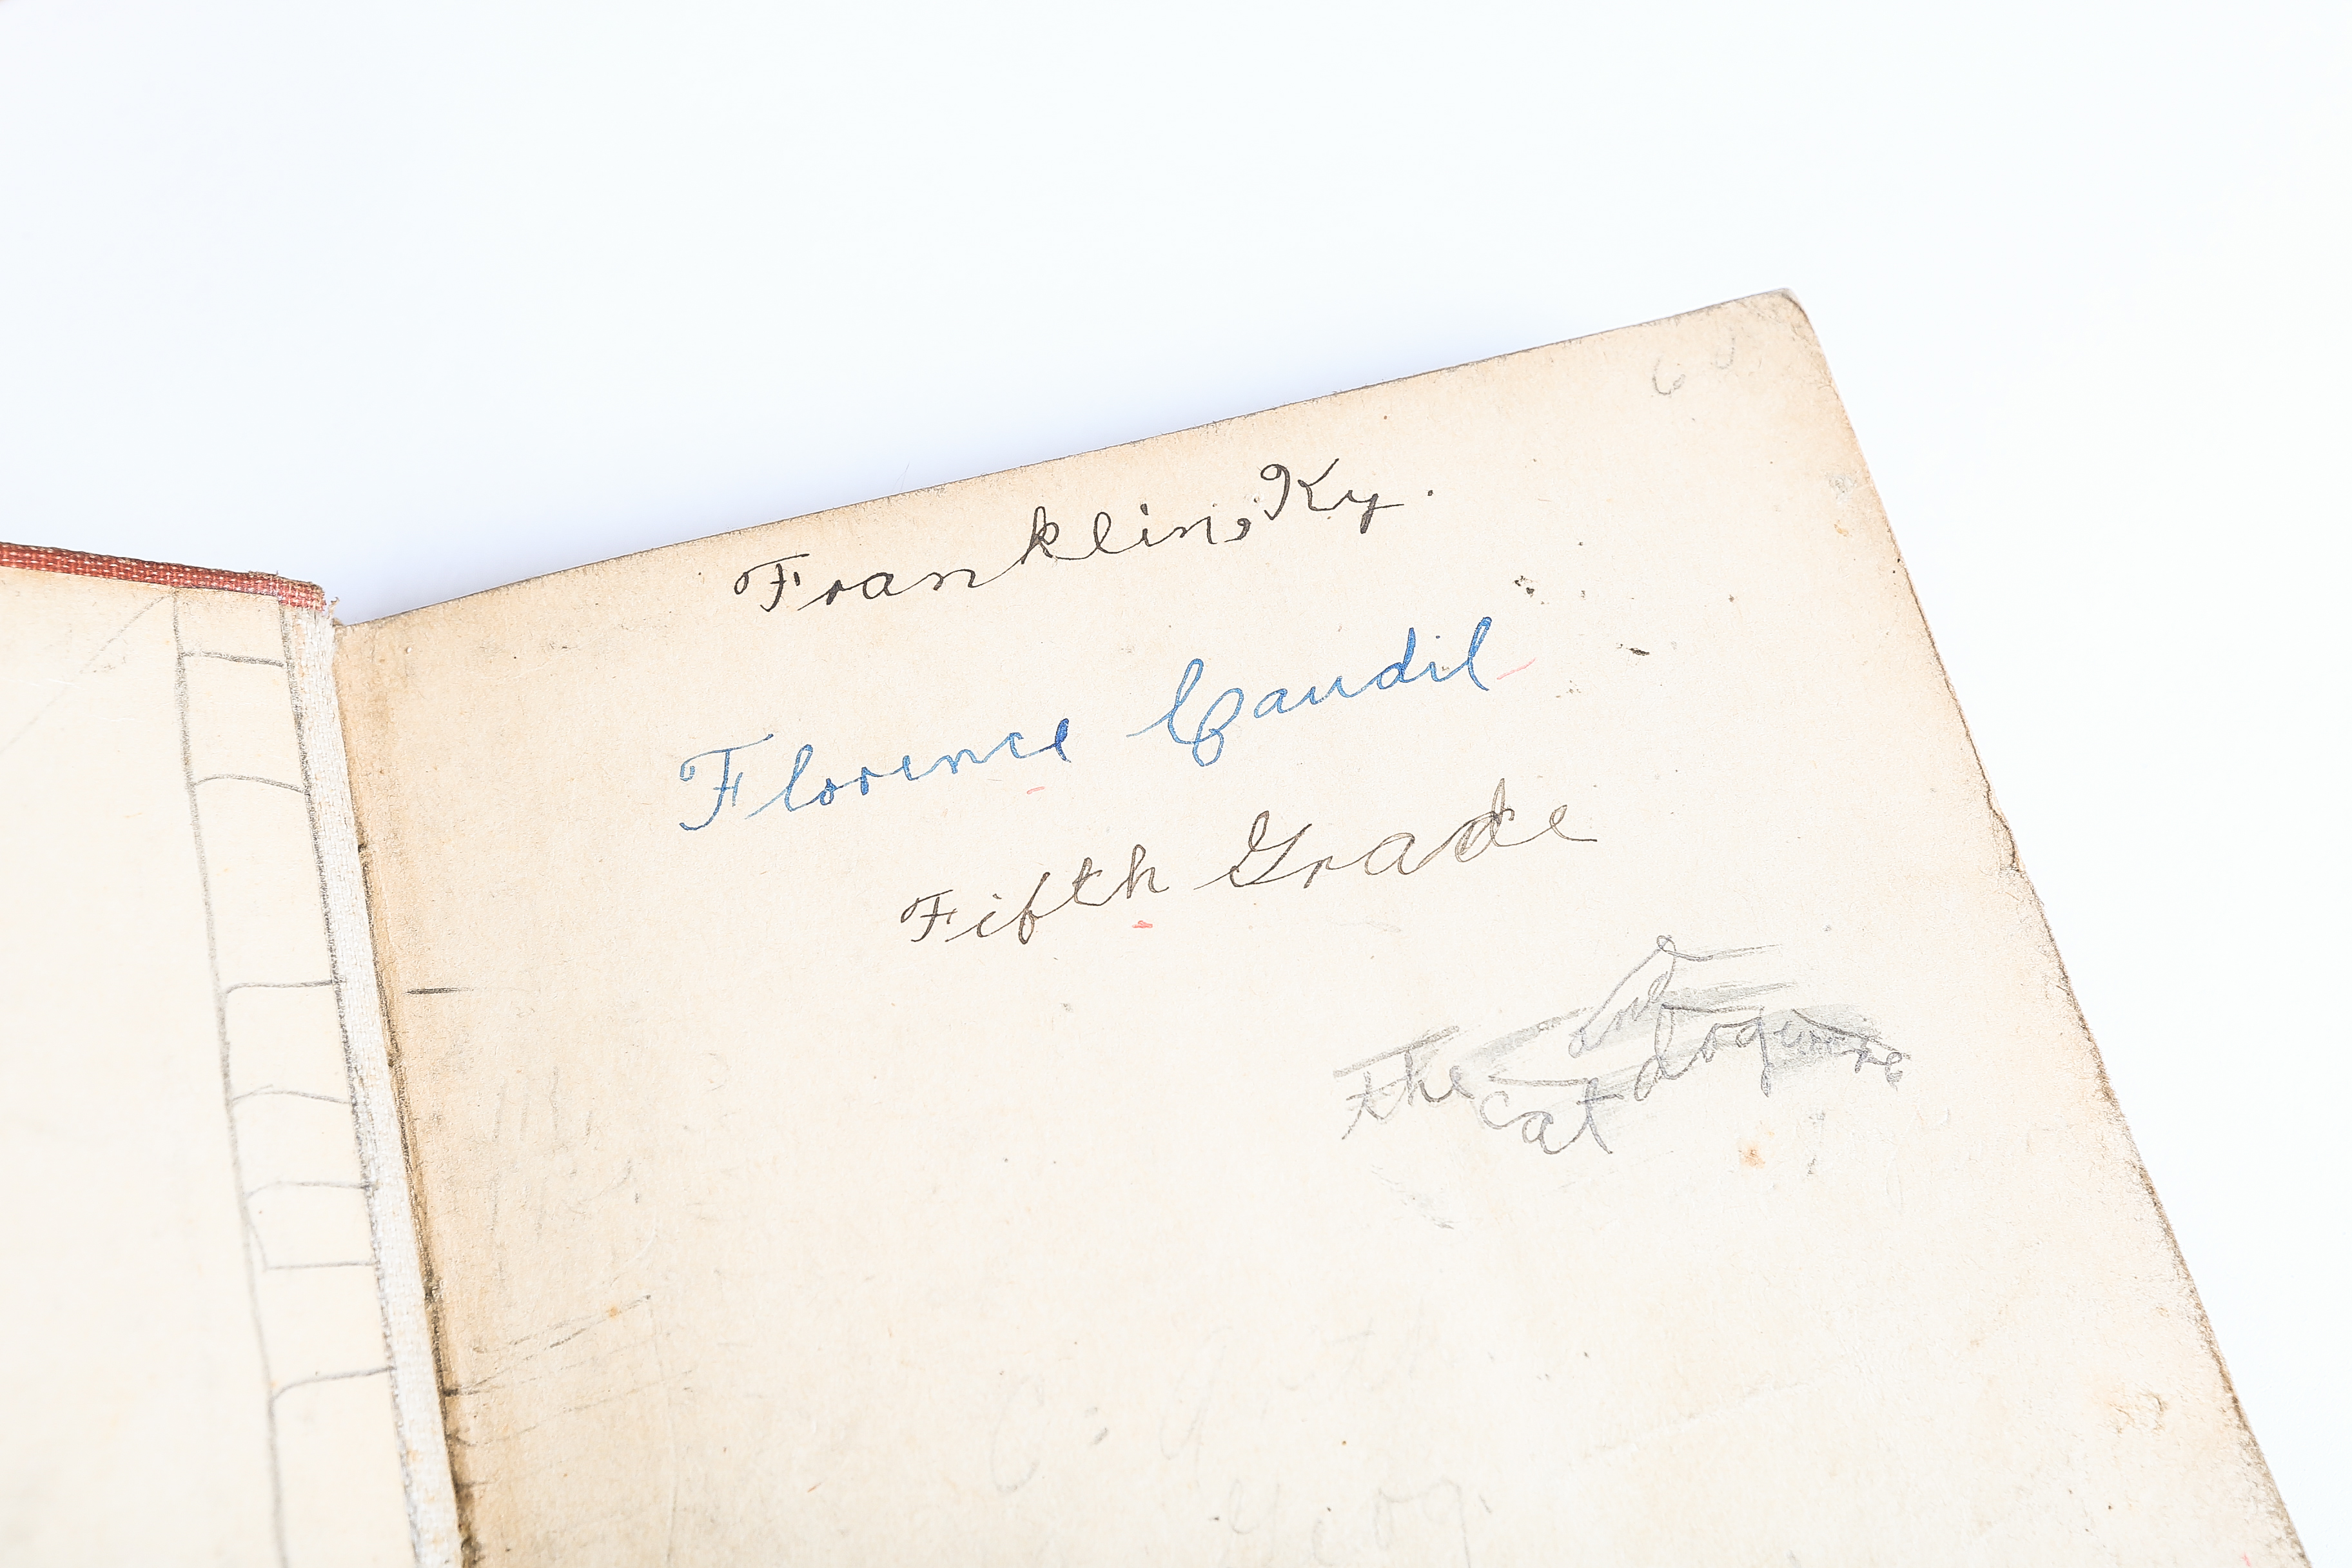 Franklin, Ky.
Florence Caudil
Fifth Grade
and
the cat dog